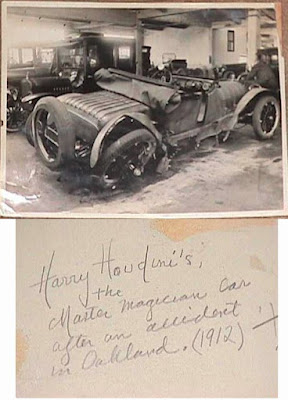 Harry Houdini's,
the
Master magician car
after an accident
in Oakland. (1912)